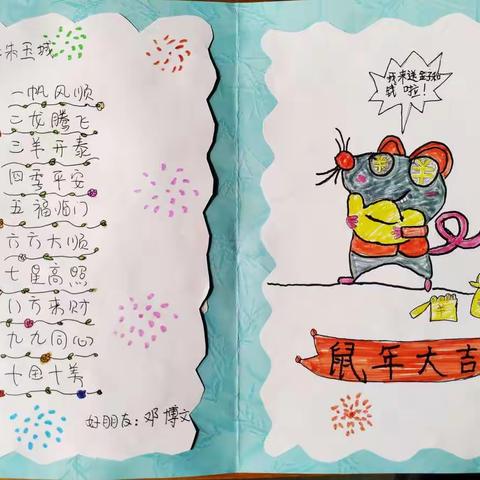 朱玉城
一帆风顺
二龙腾飞
三羊开泰
四季平安
五福临门
六六大顺
七星高照
八方来财
九九同心
十全十美
好朋友：邓博文
我来送金子和
钱啦！
鼠年大吉